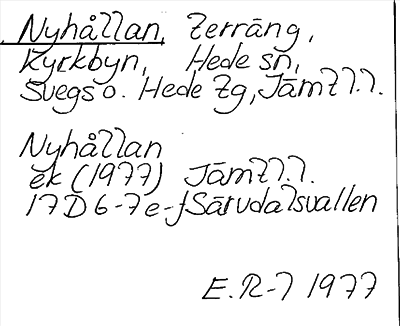 Nyhållan, Terräng,
Kyrkbyn, Hede sn,
Svegs o. Hede tg, Jämtl.l.
Nyhållan
ek (1977) Jämtl.l.
17D 6-7e-f Särvdalsvallen
E.R-l 1977